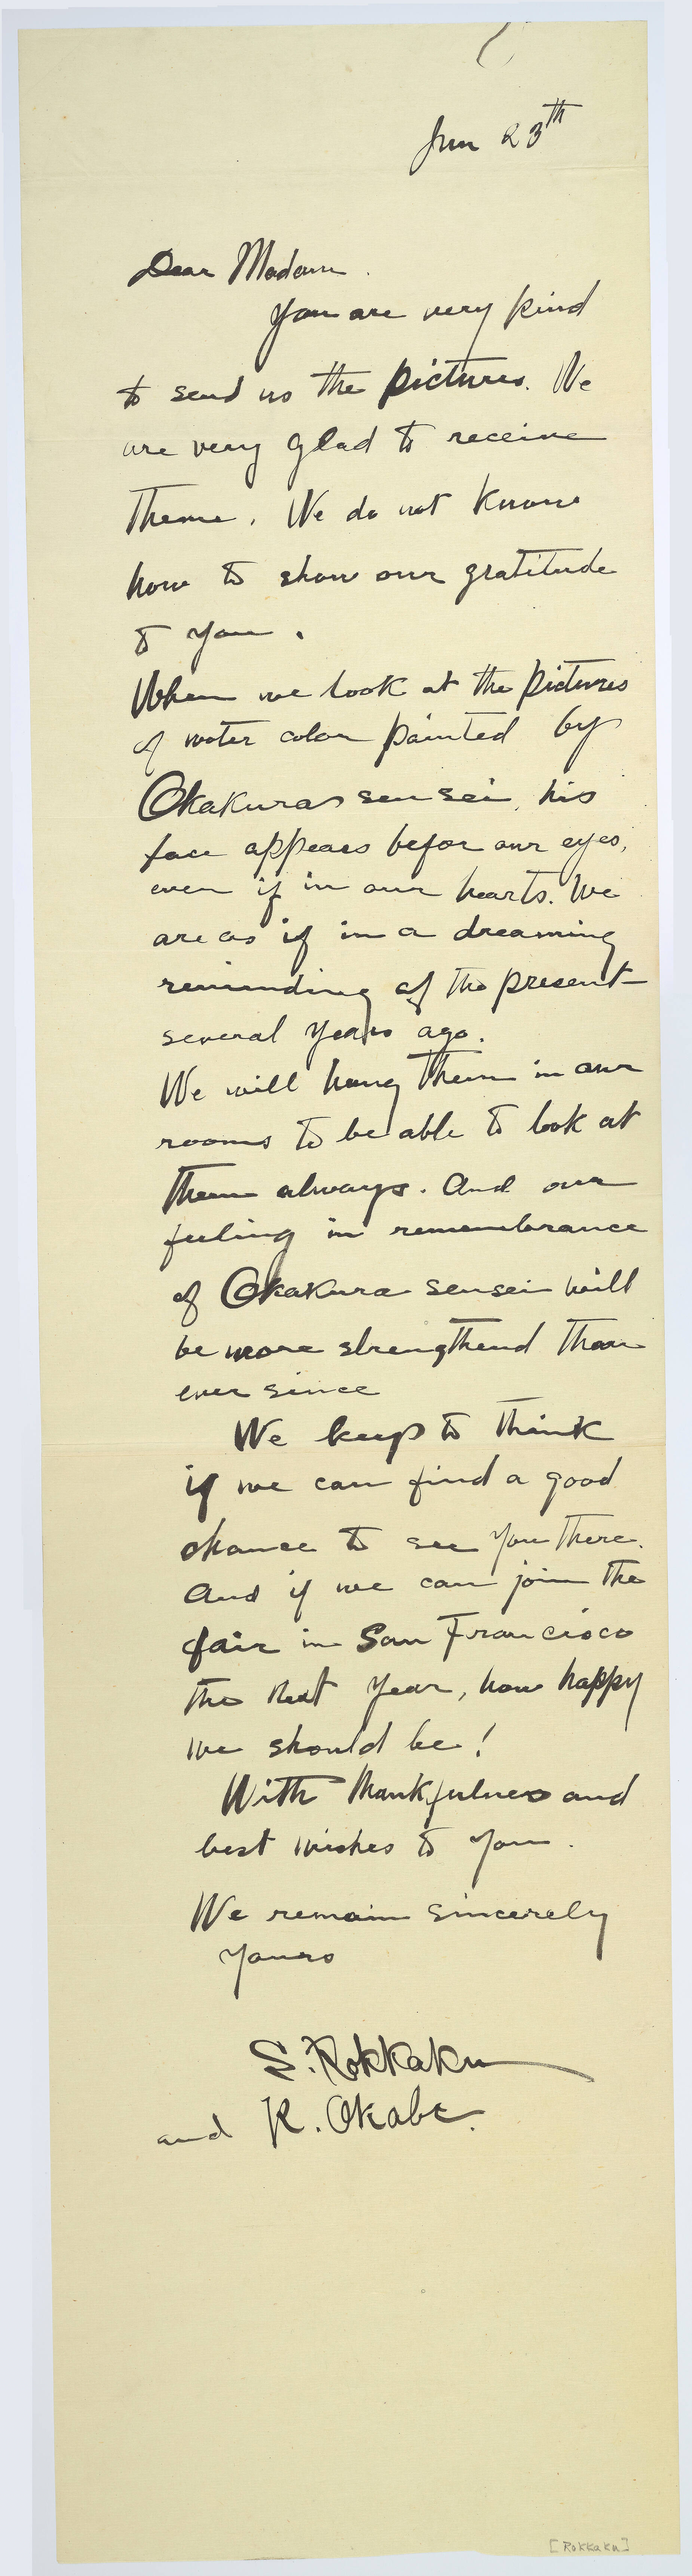 Jun 23th
Dear Madam.
You are very kind
to send us the pictures. We
are very glad to receive
theme. We do not know
how to show our gratitude
to you.
When we look at the pictures
of water color painted by
Okakura sensei, his
face appears befor our eyes,
even if in our hearts. We
are as if in a dreaming
reminding of the present
several years ago.
We will hang them in our
rooms to be able to look at
them always. And our
feeling in remembrance
of Okakura sensei will
be more strengthend than
ever since
We keep to think
if we can find a good
chance to see you there.
And if we can join the
fair in San Francisco
the next year, how happy
we should be!
With thankfulness and
best wishes to you.
We remain sincerely
yours
S. Rokkaku
and K. Okabe.
[Rokkaku]